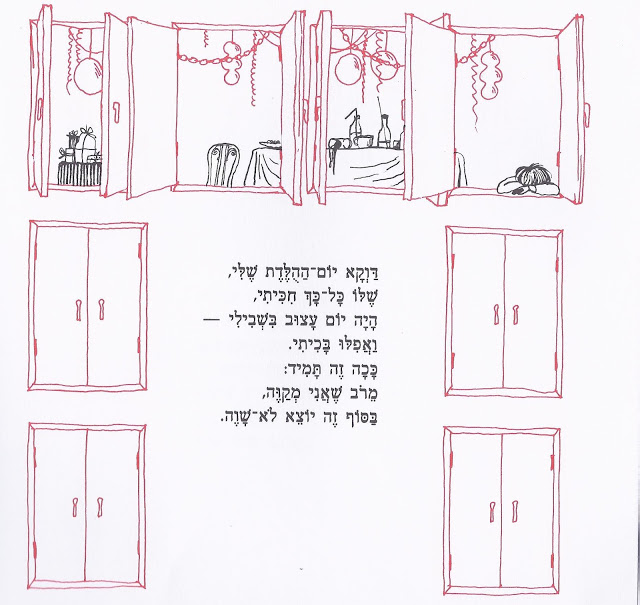 דַּוְקָא יוֹם־הַהֻלֶּדֶת שֶׁלִּי,
שֶׁלּוֹ כָּל־כָּךְ חִכִּיתִי,
הָיָה יוֹם עָצוּב בִּשְׁבִילִי —
וַאֲפִלּוּ בָּכִיתִי.
כָּכָה זֶה תָּמִיד:
מֵרֹב שֶׁאֲנִי מְקַוֶּה,
בַּסּוֹף זֶה יוֹצֵא לֹא־שָׁוֶה.